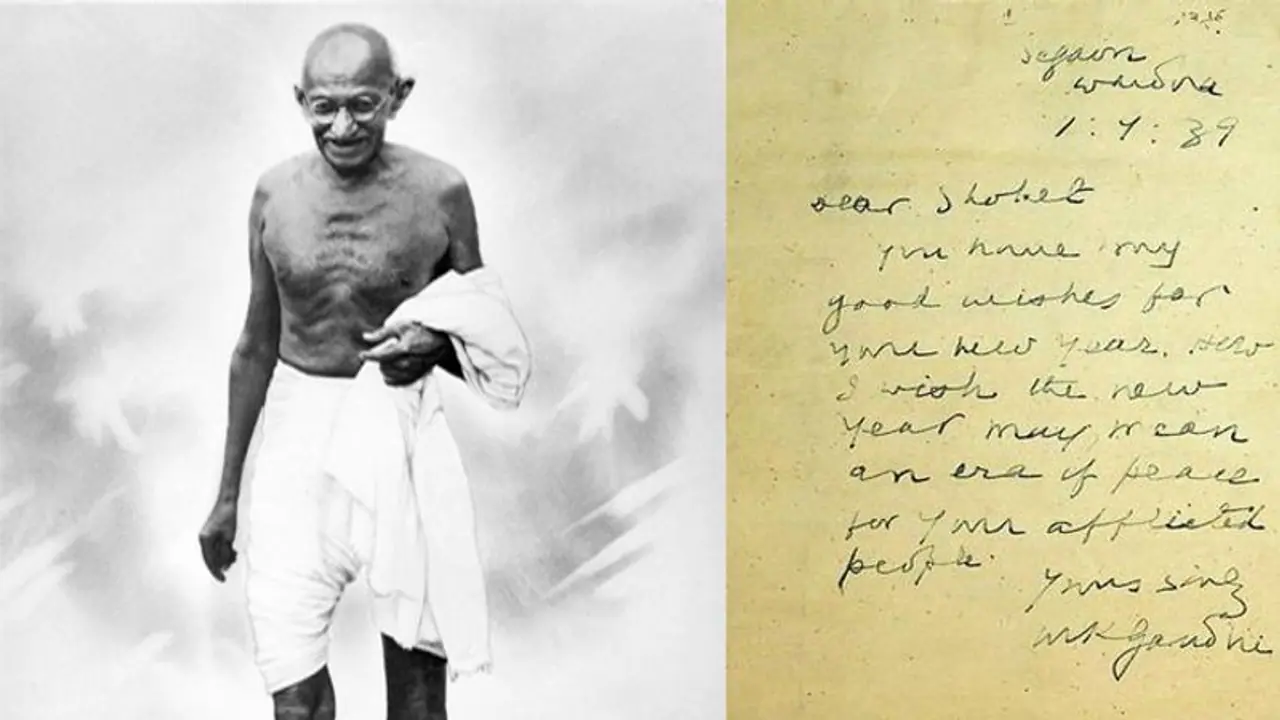 Segaon
Wardha
1 : 9 : 39
Dear Shohet
You have my
good wishes for
your new year. How
I wish the new
year may mean
an era of peace
for your afflicted
people.
Yours sincly
MKGandhi